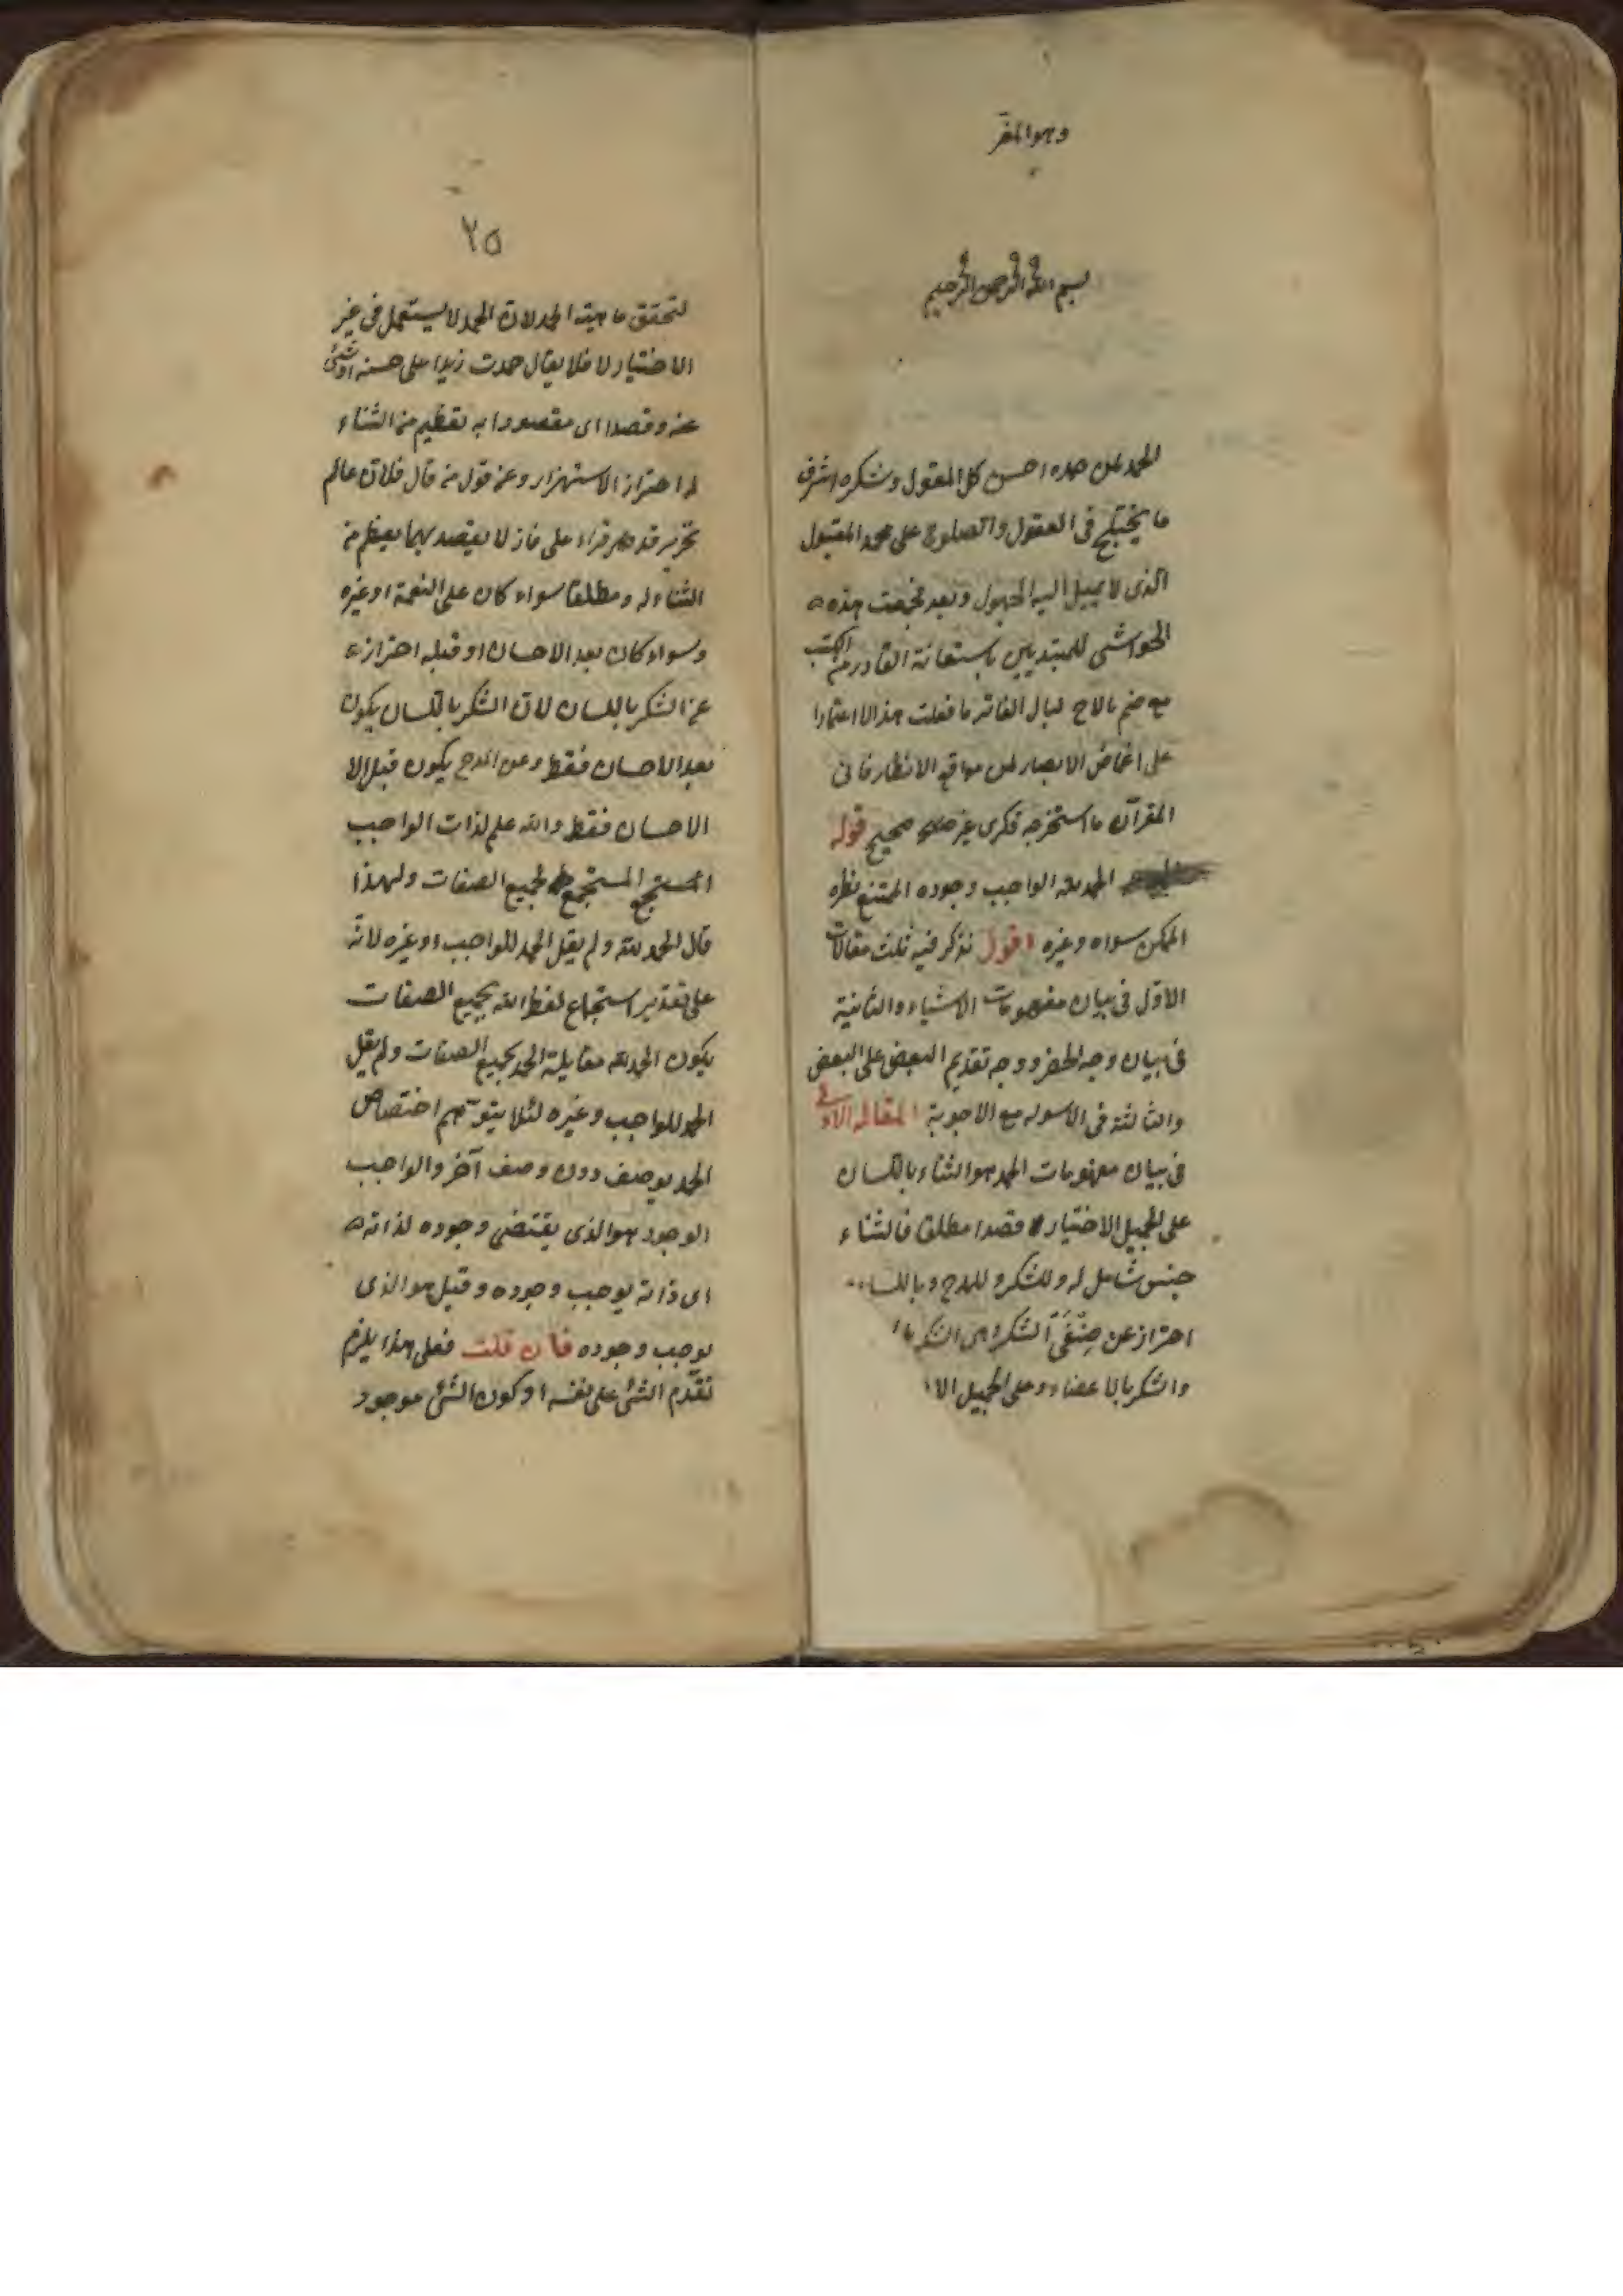 وهو المعز
بسم الله الرحمن الرحيم
الحمد لمن حمده احسن كل المقول وشكره اشرف
ما يختلج فى العقول والصلوة على محمد المقبول
الذى لا يميل اليه الجهول وبعد فجمعت هذه
الحواشى للمبتديين باستعانة القادر من الكتب
مع ضم ما لاح لبال الفاتر ما فعلت هذا الا اعتمادا
على اغماض الابصار لمن مواقع الانظار فانى
المقر ان ما استخرجه فكرى غير صحيح قوله
الحمد لله الواجب وجوده الممتنع نظيره
الممكن سواه وغيره اقول نذكر فيه ثلث مقالات
الاول فى بيان مفهومات الاشياء والثانية
فى بيان وجه الحصر ووجه تقديم البعض على البعض
والثالثة فى الاسوله مع الاجوبة المقالة الاولى
فى بيان مفهومات الحمد هو الثناء باللسان
على الجميل الاختيارى قصدا مطلقا فالثناء
جنس شامل له وللشكر وللمدح وباللسان
احتراز عن صنفى الشكر
والشكر بالاعضاء وعلى الجميل
٢٥
لتحقق ماهية الحمد لان الحمد لا يستعمل فى غير
الاختيار لا فلا يقال حمدت زيدا على حسنه
عنه وقصدا اى مقصودا به تعظيم من الثناء
له احتراز الاستهزاء وعن قول من قال فلان عالم
لا يقصد بهما تعظيم من
الثناء له ومطلقا سواء كان على النعمة او غيره
وسواء كان بعد الاحسان او قبله احتراز
عن الشكر باللسان لان الشكر باللسان يكون
بعد الاحسان فقط وعن المدح يكون قبل الا
الاحسان فقط والله علم لذات الواجب
المستجمع المستجمع لجميع الصفات ولهذا
قال الحمد لله ولم يقل الحمد للواجب او غيره لانه
على تقدير استجماع لفظ الله بجميع الصفات
يكون الحمد لله مقابلة الحمد بجميع الصفات ولم يقل
الحمد للواجب وغيره لئلا يتوهم اختصاص
الحمد بوصف دون وصف آخر والواجب
الوجود هو الذى يقتضى وجوده لذاته
اى ذاته يوجب وجوده وقيل هو الذى
يوجب وجوده فان قلت فعلى هذا يلزم
تقدم الشئ على نفسه او كون الشئ موجود